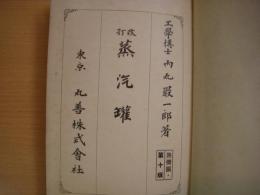 工學博士 内丸最一郎著
改訂 蒸汽罐
第十版
東京 丸善株式會社